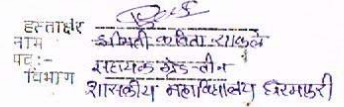 हस्ताक्षर
नाम श्रीमती कविता
पद :- सहायक ग्रेड-तीन
विभाग शासकीय महाविद्यालय